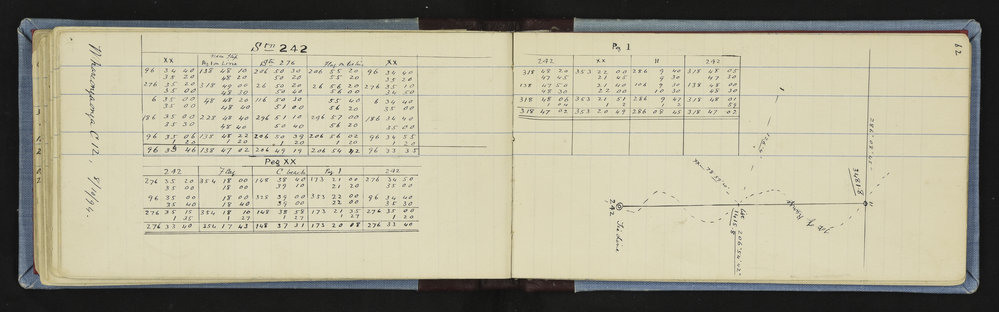 Stn 242
XX | New Flag Peg on Line | Btn 276 | Flag on Line | XX
96 34 40 | 138 48 10 | 206 50 30 | 206 55 20 | 96 34 40
35 20 | 48 20 | 50 30 | 55 20 | 35 20
276 35 20 | 318 49 00 | 26 50 20 | 26 56 20 | 276 35 10
35 00 | 48 30 | 50 40 | 56 00 | 34 50
6 35 00 | 48 48 20 | 116 50 30 | 55 40 | 6 34 40
35 00 | 48 40 | 51 00 | 56 20 | 35 00
186 35 00 | 228 48 40 | 296 51 10 | 296 57 00 | 186 34 40
35 30 | 48 40 | 50 40 | 56 20 | 35 00
96 35 06 | 138 48 22 | 206 50 39 | 206 56 02 | 96 34 55
1 20 | 1 20 | 1 20 | 1 20 | 1 20
96 33 46 | 138 47 02 | 206 49 19 | 206 54 42 | 96 33 35
Peg XX
242 | Flag | C bench | Peg 1 | 242
276 35 20 | 354 18 00 | 148 38 40 | 173 21 00 | 276 34 50
35 00 | 18 00 | 39 10 | 21 20 | 35 00
96 35 00 | 18 00 | 325 39 00 | 353 22 00 | 96 34 40
35 40 | 18 40 | 39 00 | 22 00 | 35 30
276 35 15 | 354 18 10 | 148 38 58 | 173 21 35 | 276 35 00
1 35 | 1 27 | 1 27 | 1 27 | 1 20
276 33 40 | 354 17 43 | 148 37 31 | 173 20 08 | 276 33 40
62
Peg 1
242 | XX | H | 242
318 48 20 | 353 22 00 | 286 9 40 | 318 48 05
47 45 | 21 45 | 9 30 | 47 30
138 47 50 | 21 40 | 106 9 30 | 138 48 00
48 30 | 22 00 | 10 30 | 48 30
318 48 06 | 353 21 51 | 286 9 47 | 318 48 01
318 47 02 | 353 20 49 | 286 08 45 | 318 47 02
242
To Line
1415.8
206°54'42"
top of Range
286°08'45"
3481.8
H